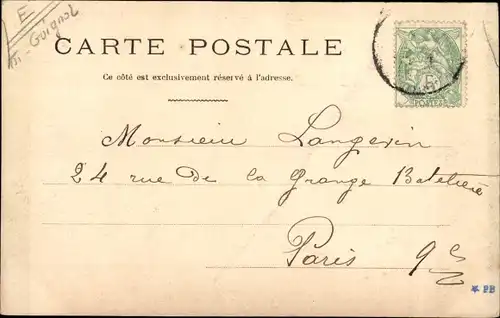 E
Guignol
CARTE POSTALE
Ce côté est exclusivement réservé à l'adresse.
5
POSTES
Monsieur Langevin
24 rue De la Grange Batelière
Paris 9e
* PB